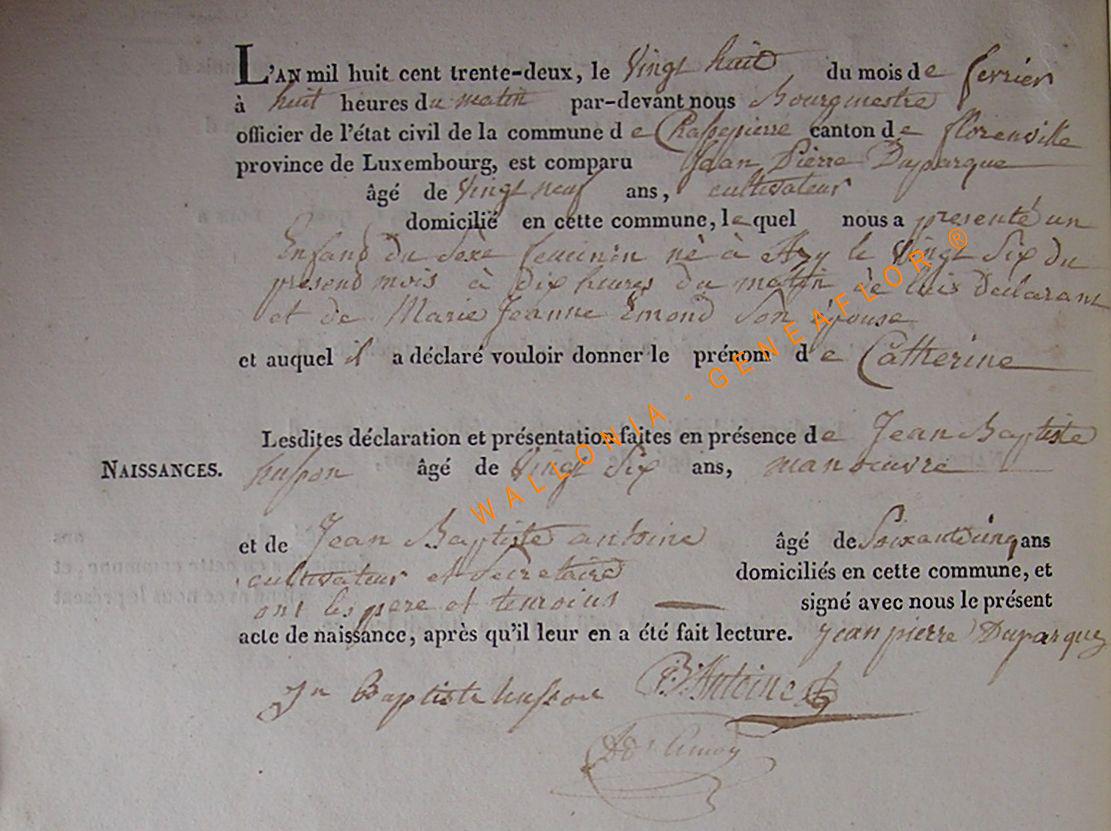 L'AN mil huit cent trente-deux, le Vingt huit du mois de fevrier
à huit heures du matin par-devant nous Bourgmestre
officier de l'état civil de la commune de Chassepierre canton de florenville
province de Luxembourg, est comparu Jean Pierre Duparque
âgé de Vingt neuf ans, cultivateur
domicilié en cette commune, lequel nous a presenté un
Enfand du Sexe feminin né à Azy le Vingt Six du
presend mois à Dix heures du matin de luis Declarant
et de Marie Jeanne Emond Son épouse
et auquel il a déclaré vouloir donner le prénom de Catherine
Lesdites déclaration et présentation faites en présence de Jean Baptiste
NAISSANCES. husson âgé de Vingt Six ans, manoeuvre
et de Jean Baptiste antoine âgé de Soixante cinq ans
cultivateur et Secretaire domiciliés en cette commune, et
ont les pere et temoins signé avec nous le présent
acte de naissance, après qu'il leur en a été fait lecture. jean pierre Duparque
Jn Baptiste husson Antoine
WALLONIA - GENEAFLOR ®